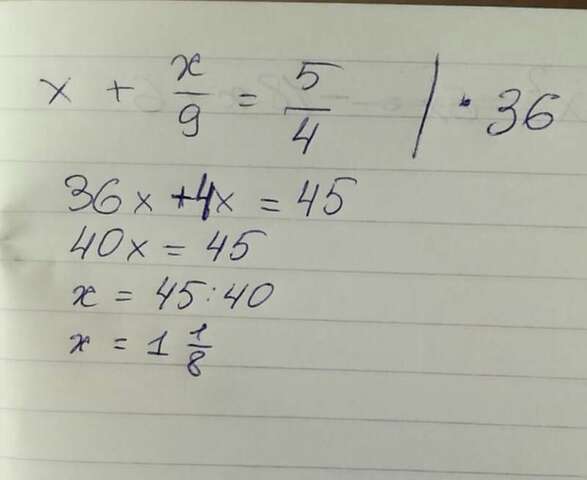 x + x/9 = 5/4 | · 36
36x + 4x = 45
40x = 45
x = 45 : 40
x = 1 1/8